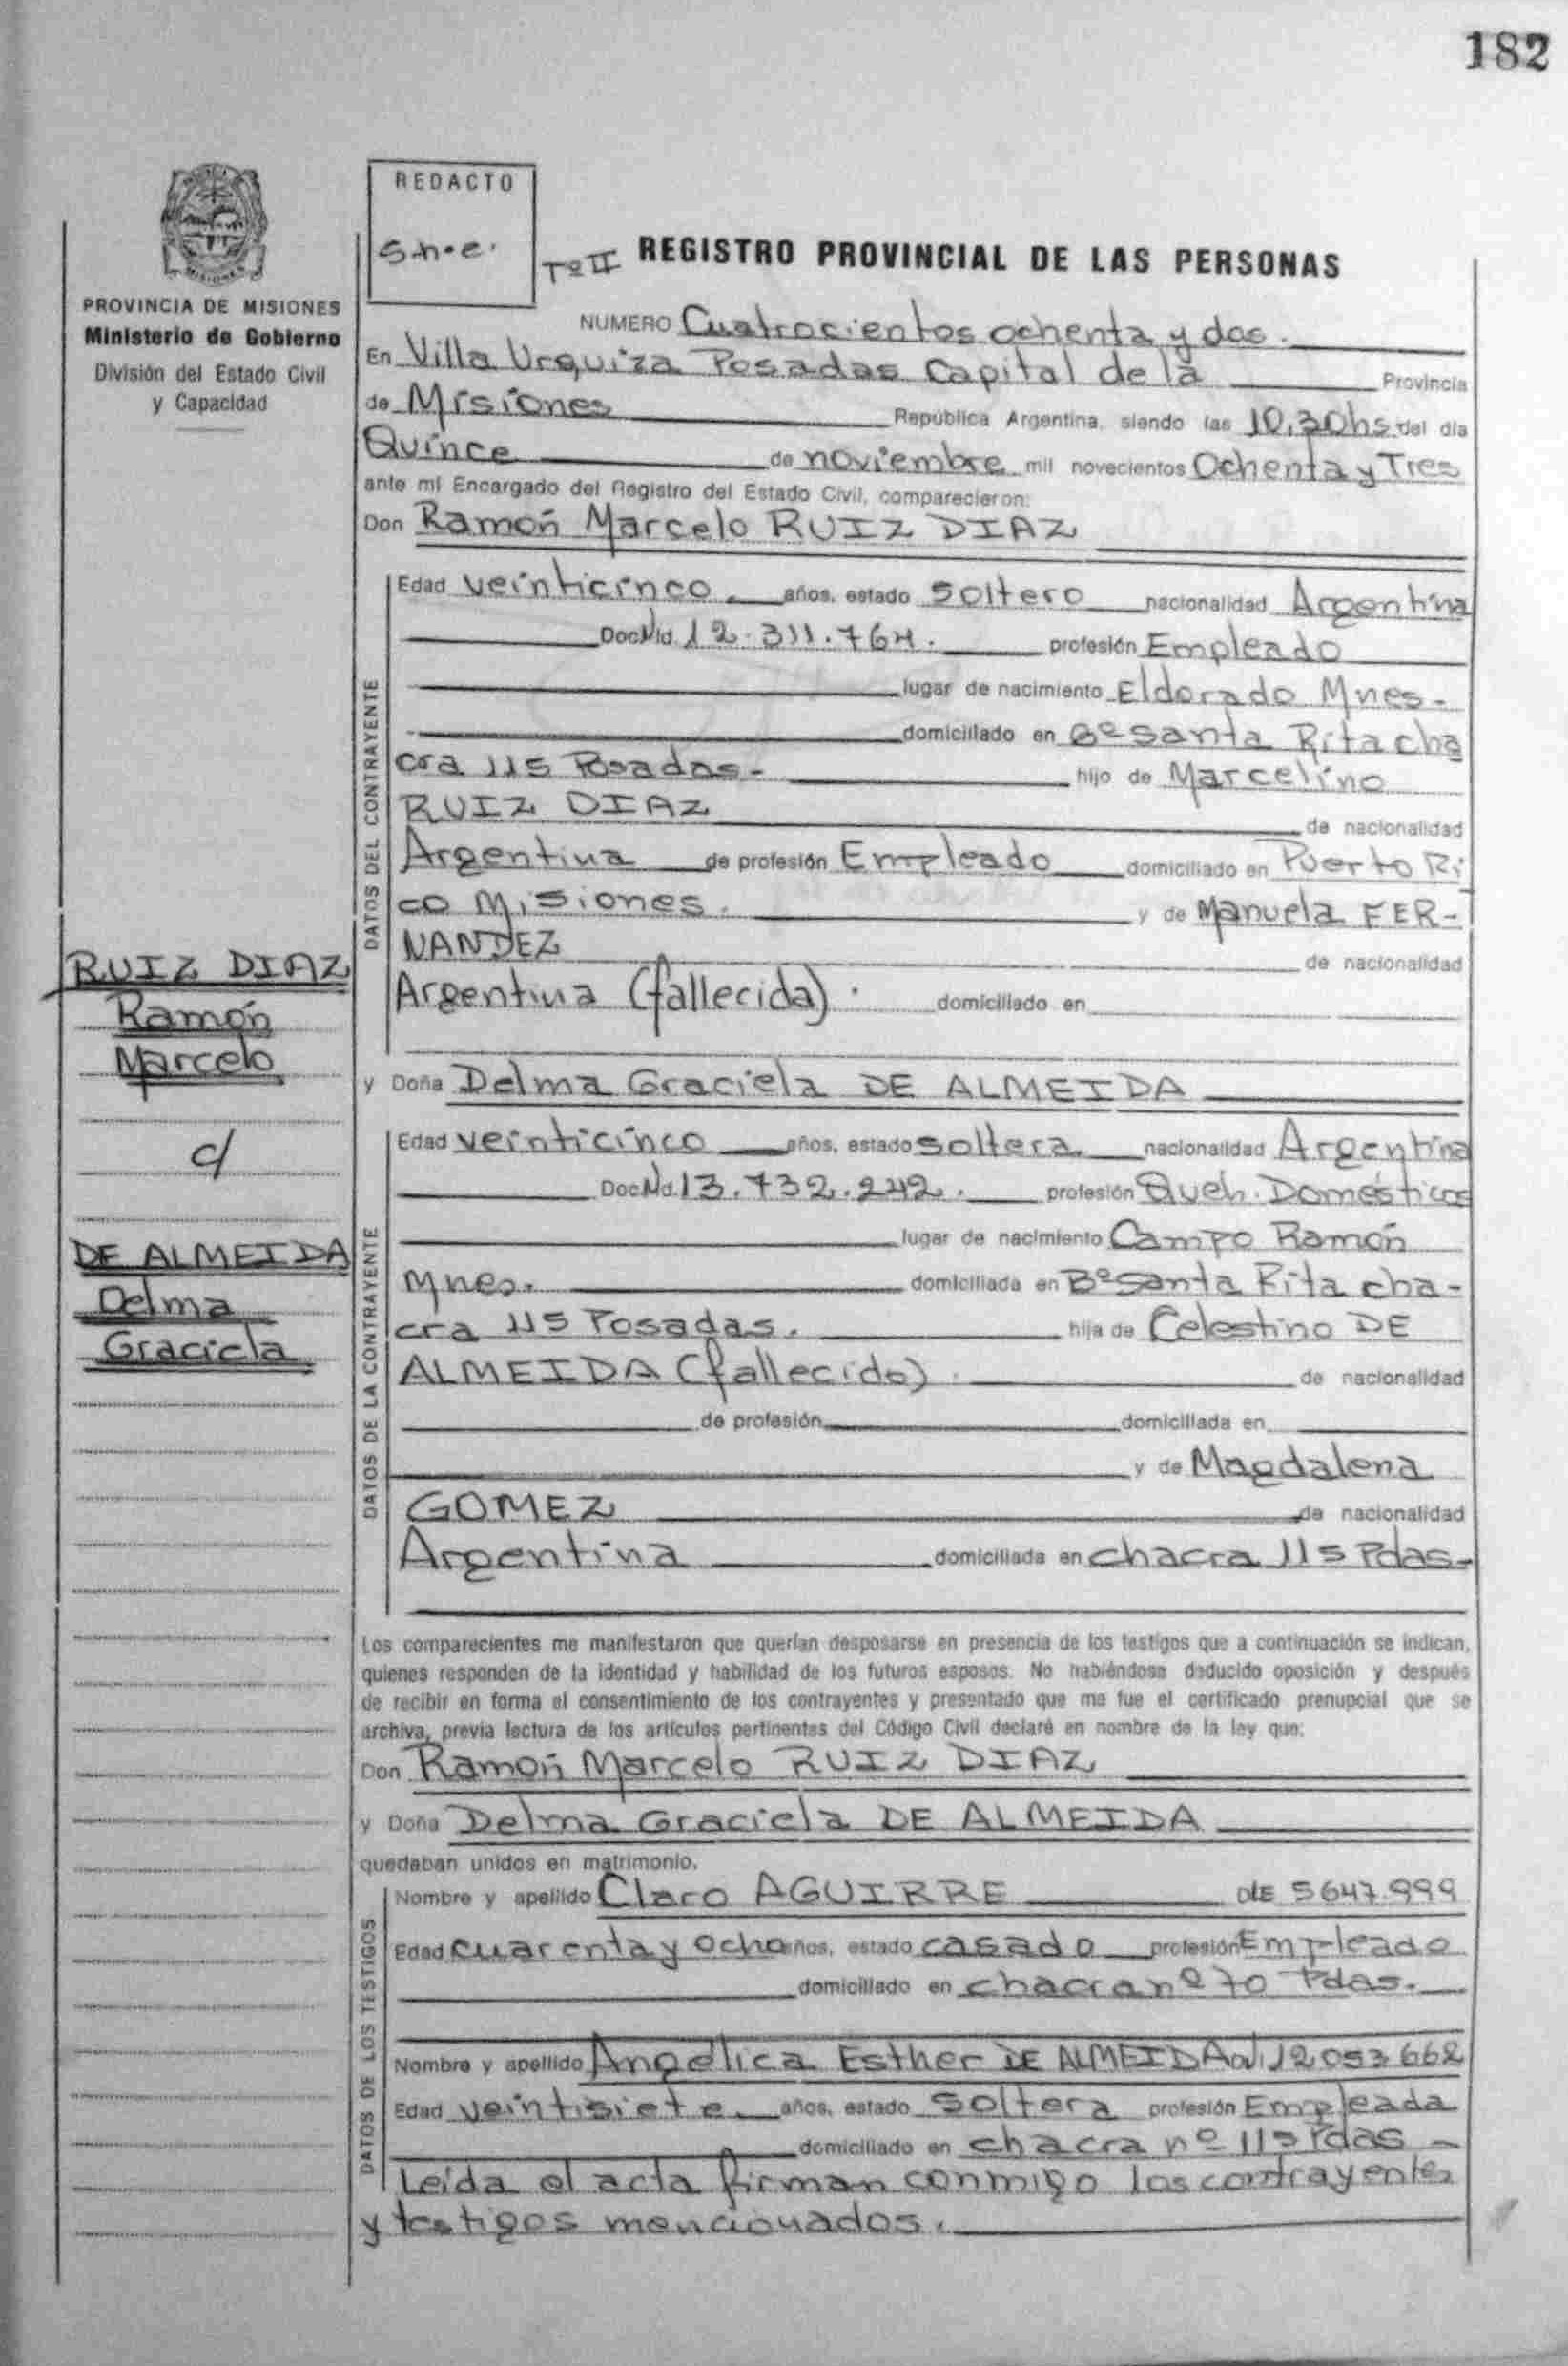 182
REDACTO
S.n.e.
Tº II REGISTRO PROVINCIAL DE LAS PERSONAS
PROVINCIA DE MISIONES
Ministerio de Gobierno
División del Estado Civil
y Capacidad
NUMERO Cuatrocientos ochenta y dos.
En Villa Urquiza Posadas Capital de la Provincia
de Misiones República Argentina, siendo las 10,30hs del día
Quince de noviembre mil novecientos Ochenta y Tres
ante mí Encargado del Registro del Estado Civil, comparecieron:
Don Ramón Marcelo RUIZ DIAZ
DATOS DEL CONTRAYENTE
Edad veinticinco. años, estado Soltero nacionalidad Argentina
Doc. Nid. 12.311.764. profesión Empleado
lugar de nacimiento Eldorado Mnes.
domiciliado en Bº Santa Rita cha
cra 115 Posadas- hijo de Marcelino
RUIZ DIAZ de nacionalidad
Argentina de profesión Empleado domiciliado en Puerto Ri
co Misiones. y de Manuela FER-
NANDEZ de nacionalidad
Argentina (fallecida). domiciliado en
RUIZ DIAZ
Ramón
Marcelo
c/
DE ALMEIDA
Delma
Graciela
y Doña Delma Graciela DE ALMEIDA
DATOS DE LA CONTRAYENTE
Edad veinticinco años, estado soltera nacionalidad Argentina
Doc. Nd. 13.732.242. profesión Queh. Domésticos
lugar de nacimiento Campo Ramón
Mnes. domiciliada en Bº Santa Rita cha-
cra 115 Posadas. hija de Celestino DE
ALMEIDA (fallecido). de nacionalidad
de profesión domiciliada en
y de Magdalena
GOMEZ de nacionalidad
Argentina domiciliada en chacra 115 Pdas-
Los comparecientes me manifestaron que querían desposarse en presencia de los testigos que a continuación se indican,
quienes responden de la identidad y habilidad de los futuros esposos. No habiéndose deducido oposición y después
de recibir en forma el consentimiento de los contrayentes y presentado que me fue el certificado prenupcial que se
archiva, previa lectura de los artículos pertinentes del Código Civil declaré en nombre de la ley que:
Don Ramón Marcelo RUIZ DIAZ
y Doña Delma Graciela DE ALMEIDA
quedaban unidos en matrimonio.
DATOS DE LOS TESTIGOS
Nombre y apellido Claro AGUIRRE DLE 5647.999
Edad cuarenta y ocho años, estado casado profesión Empleado
domiciliado en chacra nº 70 Pdas.
Nombre y apellido Angélica Esther DE ALMEIDA 12 053 662
Edad veintisiete. años, estado Soltera profesión Empleada
domiciliado en chacra nº 115 Pdas-
Leída el acta firman conmigo los contrayentes
y testigos mencionados.